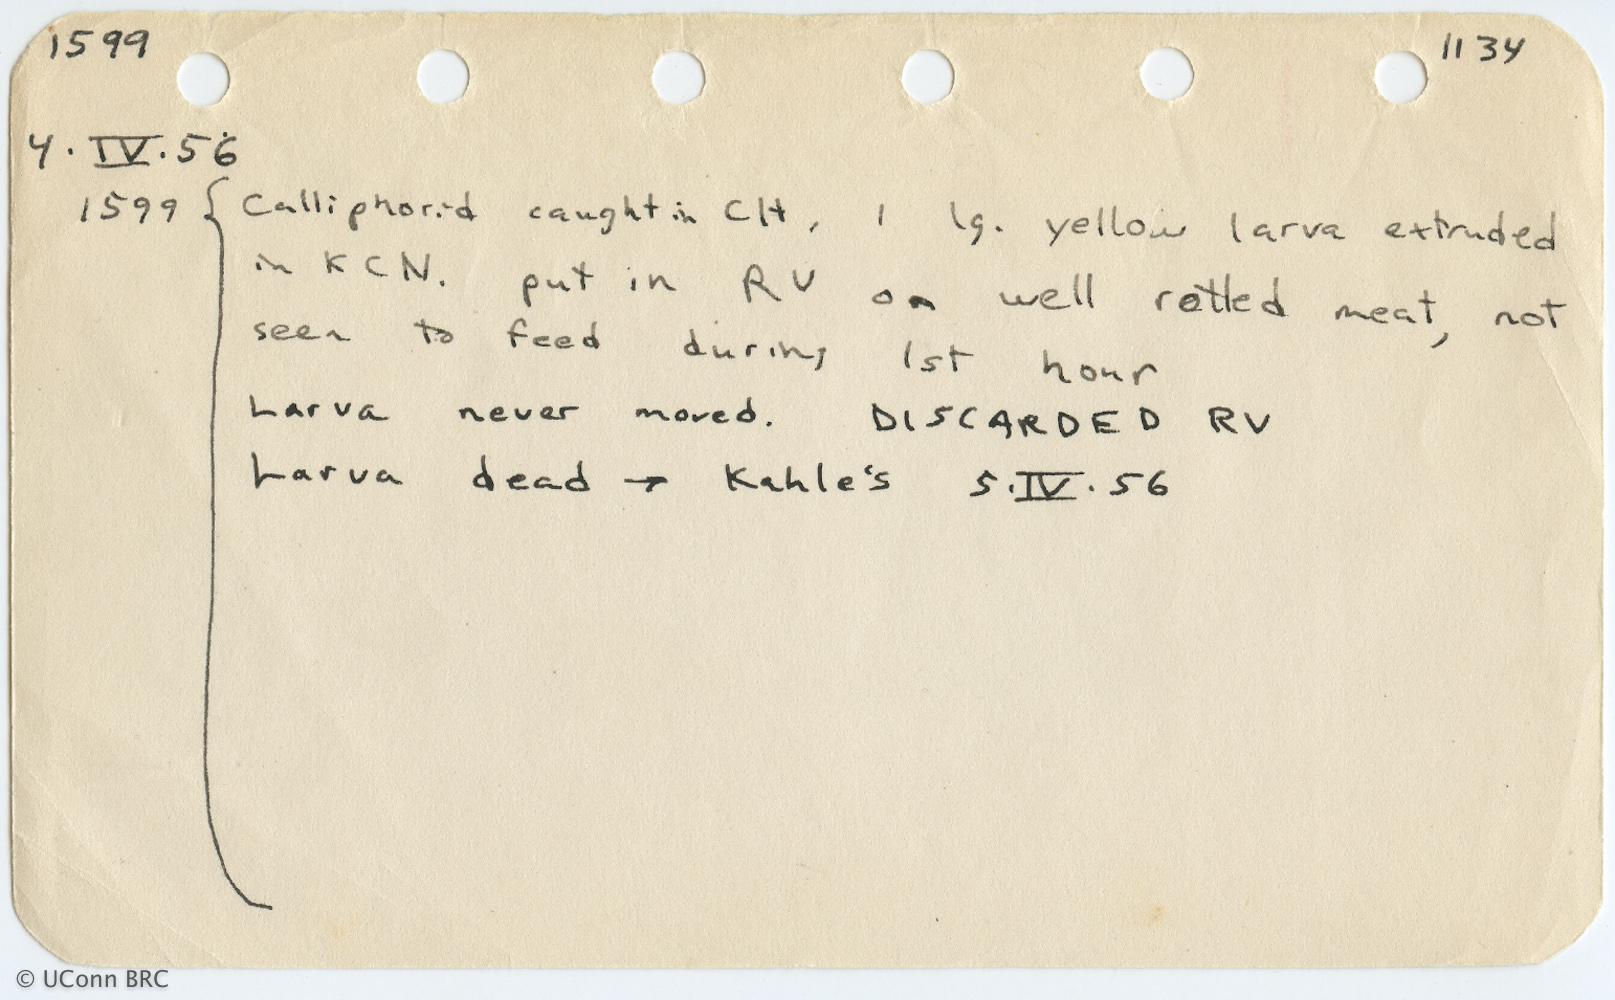 1599 1134
4.IV.56
1599 { Calliphorid caught in Clt, 1 lg. yellow larva extruded
in KCN. put in RV on well rotted meat, not
seen to feed during 1st hour
Larva never moved. DISCARDED RV
Larva dead → Kahle's 5.IV.56
© UConn BRC